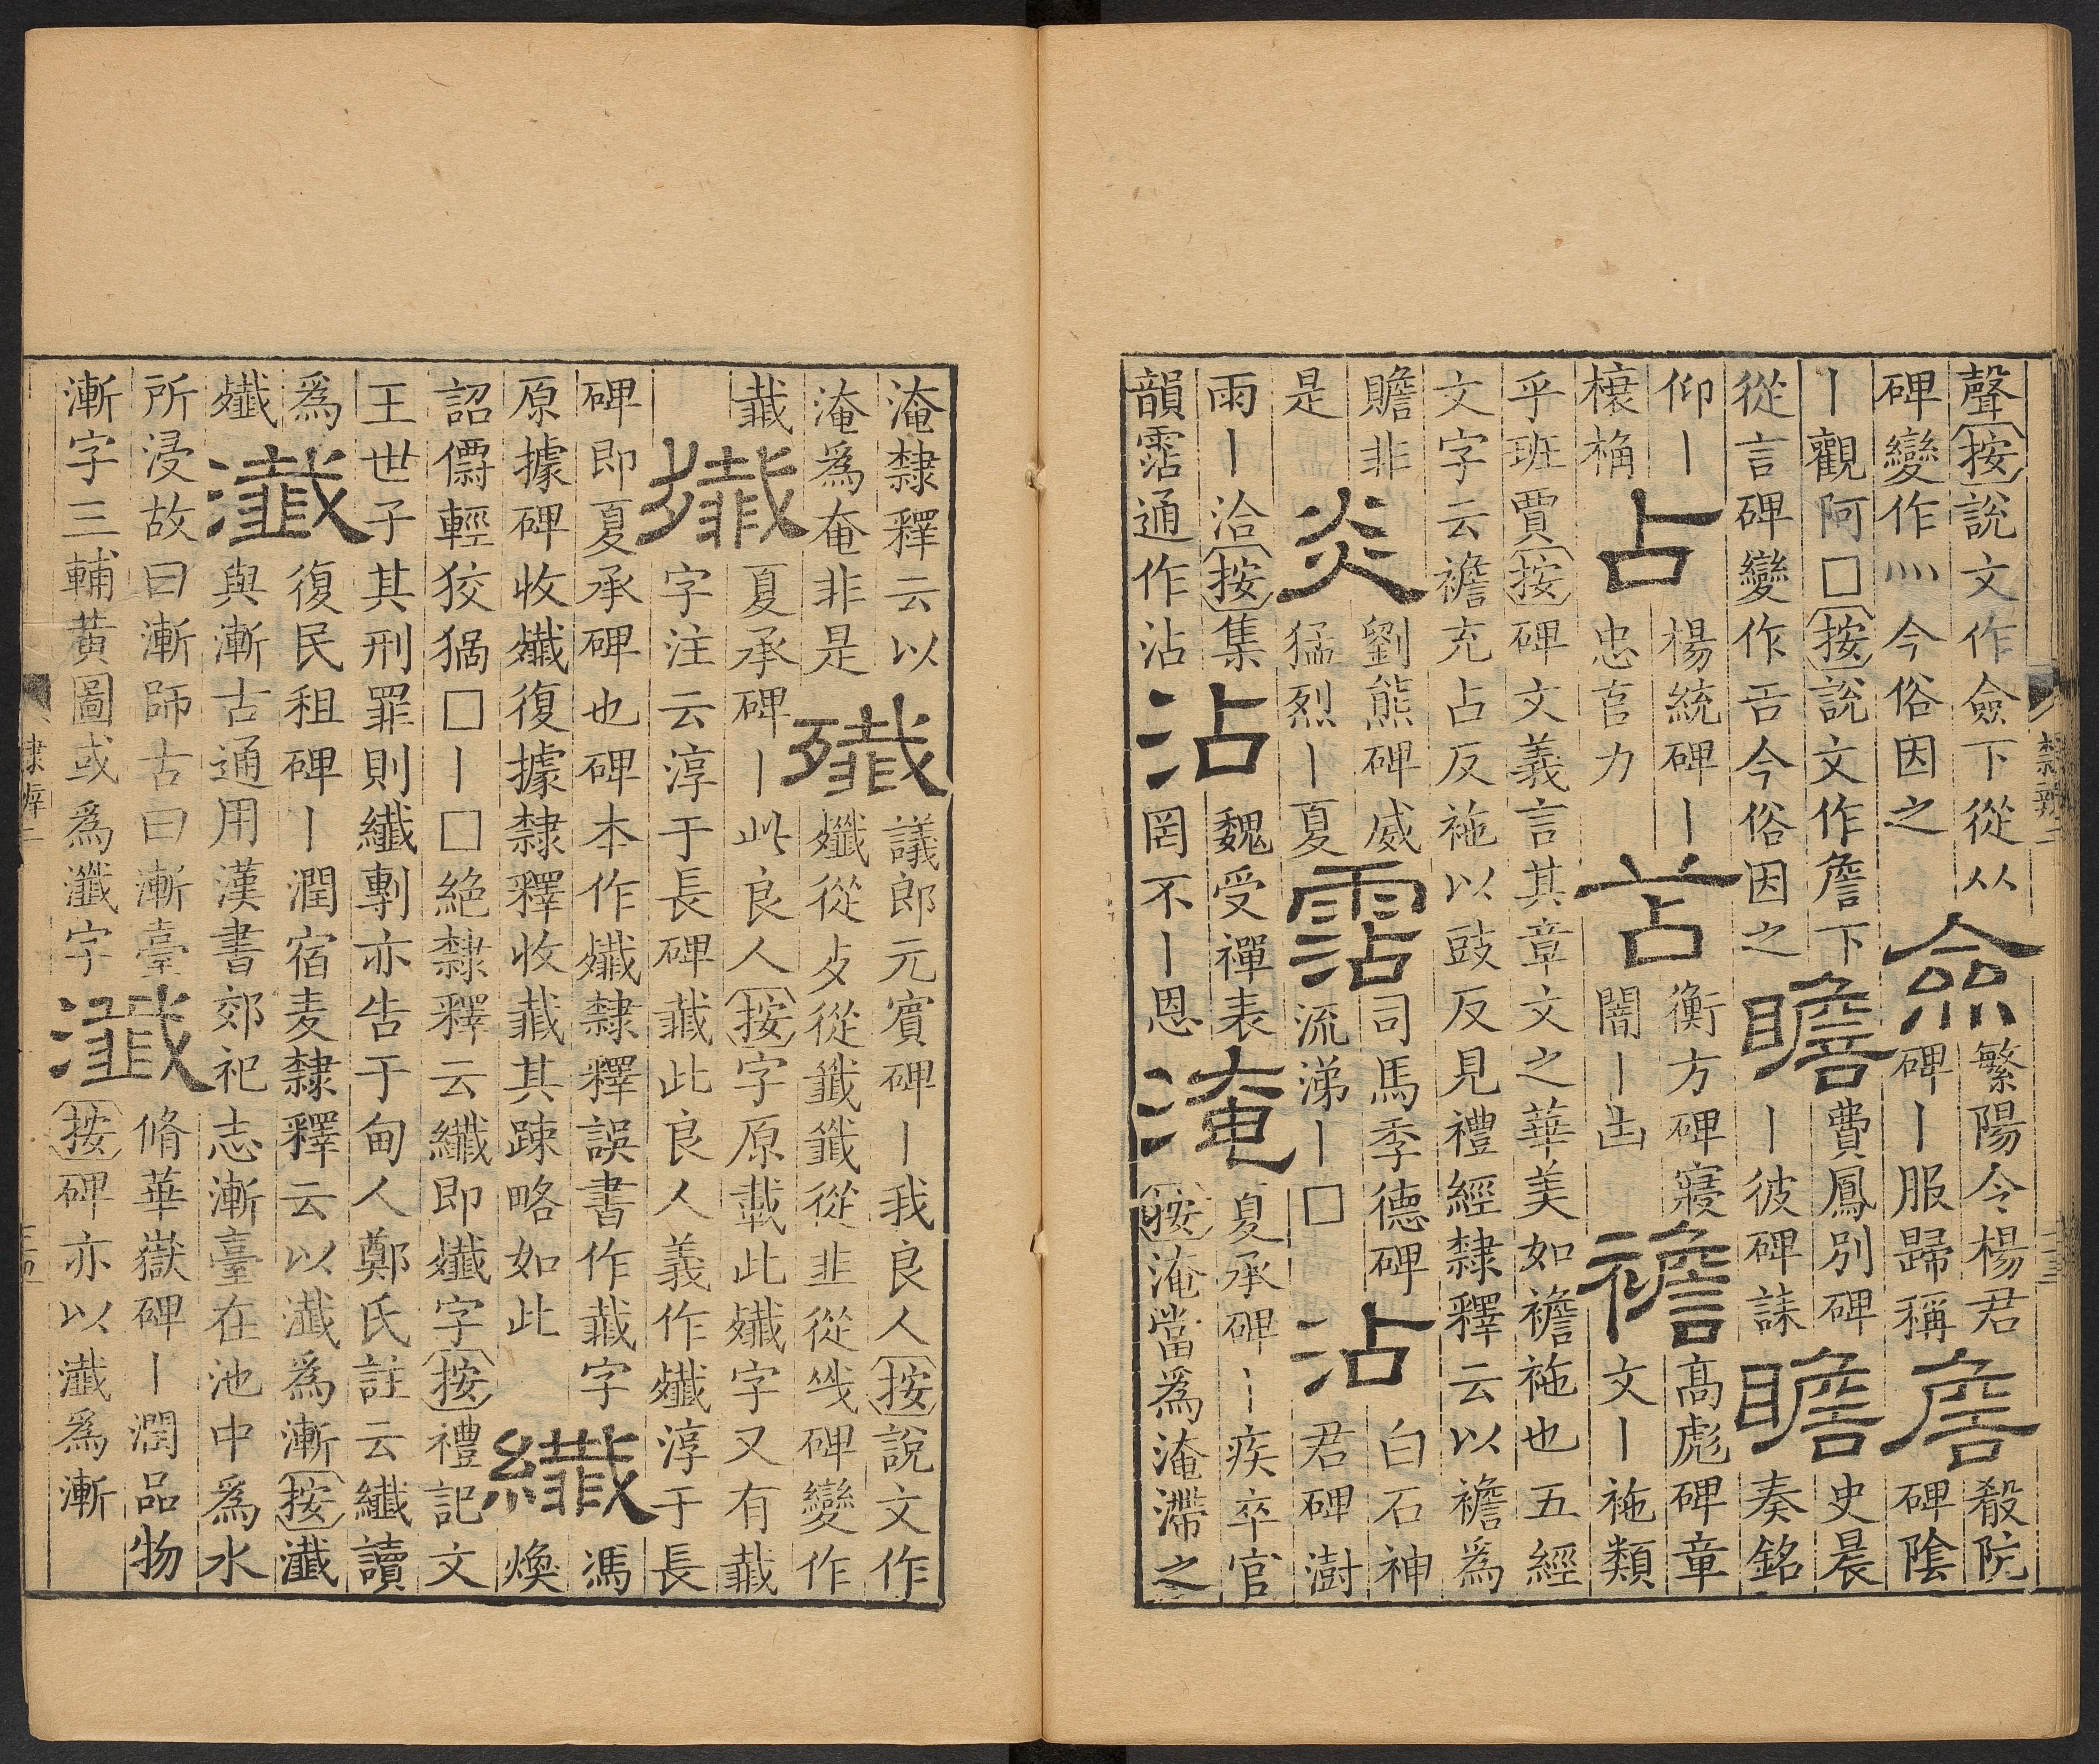 聲按說文作僉下從从
碑變作灬今俗因之
僉
繁陽令楊君
碑丨服歸稱
詹
殽阬
碑陰
丨觀阿□按說文作詹下
從言碑變作吾今俗因之
瞻
費鳳別碑
丨彼碑誄
瞻
史晨
奏銘
仰丨
榱桷
占
楊統碑丨
忠直力
苫
衡方碑寢
闇丨凷
襜
高彪碑章
文丨袘類
乎班賈按碑文義言其章文之華美如襜袘也五經
文字云襜充占反袘以豉反見禮經隸釋云以襜爲
贍非
是
炎
劉熊碑威
猛烈丨夏
霑
司馬季德碑
流涕丨□
沾
白石神
君碑澍
雨丨洽按集
韻霑通作沾
沾
魏受禪表
罔不丨恩
淹
夏承碑丨疾卒官
按淹當爲淹滯之
隸辨二
淹隸釋云以
淹爲奄非是
殲
議郎元賓碑丨我良人按說文作
殲從歺從韱韱從韭從𢦏碑變作
韯
殲
夏承碑丨此良人按字原載此殲字又有韯
字注云淳于長碑韯此良人義作殲淳于長
碑即夏承碑也碑本作殲隸釋誤書作韯字
原據碑收殲復據隸釋收韯其踈略如此
纖
馮
煥
詔輕狡猾□丨□絕隸釋云纖即殲字按禮記文
王世子其刑罪則纖剸亦告于甸人鄭氏註云纖讀
爲
殲
瀸
復民租碑丨潤宿麦隸釋云以瀸爲漸按瀸
與漸古通用漢書郊祀志漸臺在池中爲水
所浸故曰漸師古曰漸臺
漸字三輔黃圖或爲瀸字
瀸
脩華嶽碑丨潤品物
按碑亦以瀸爲漸
隸辨二